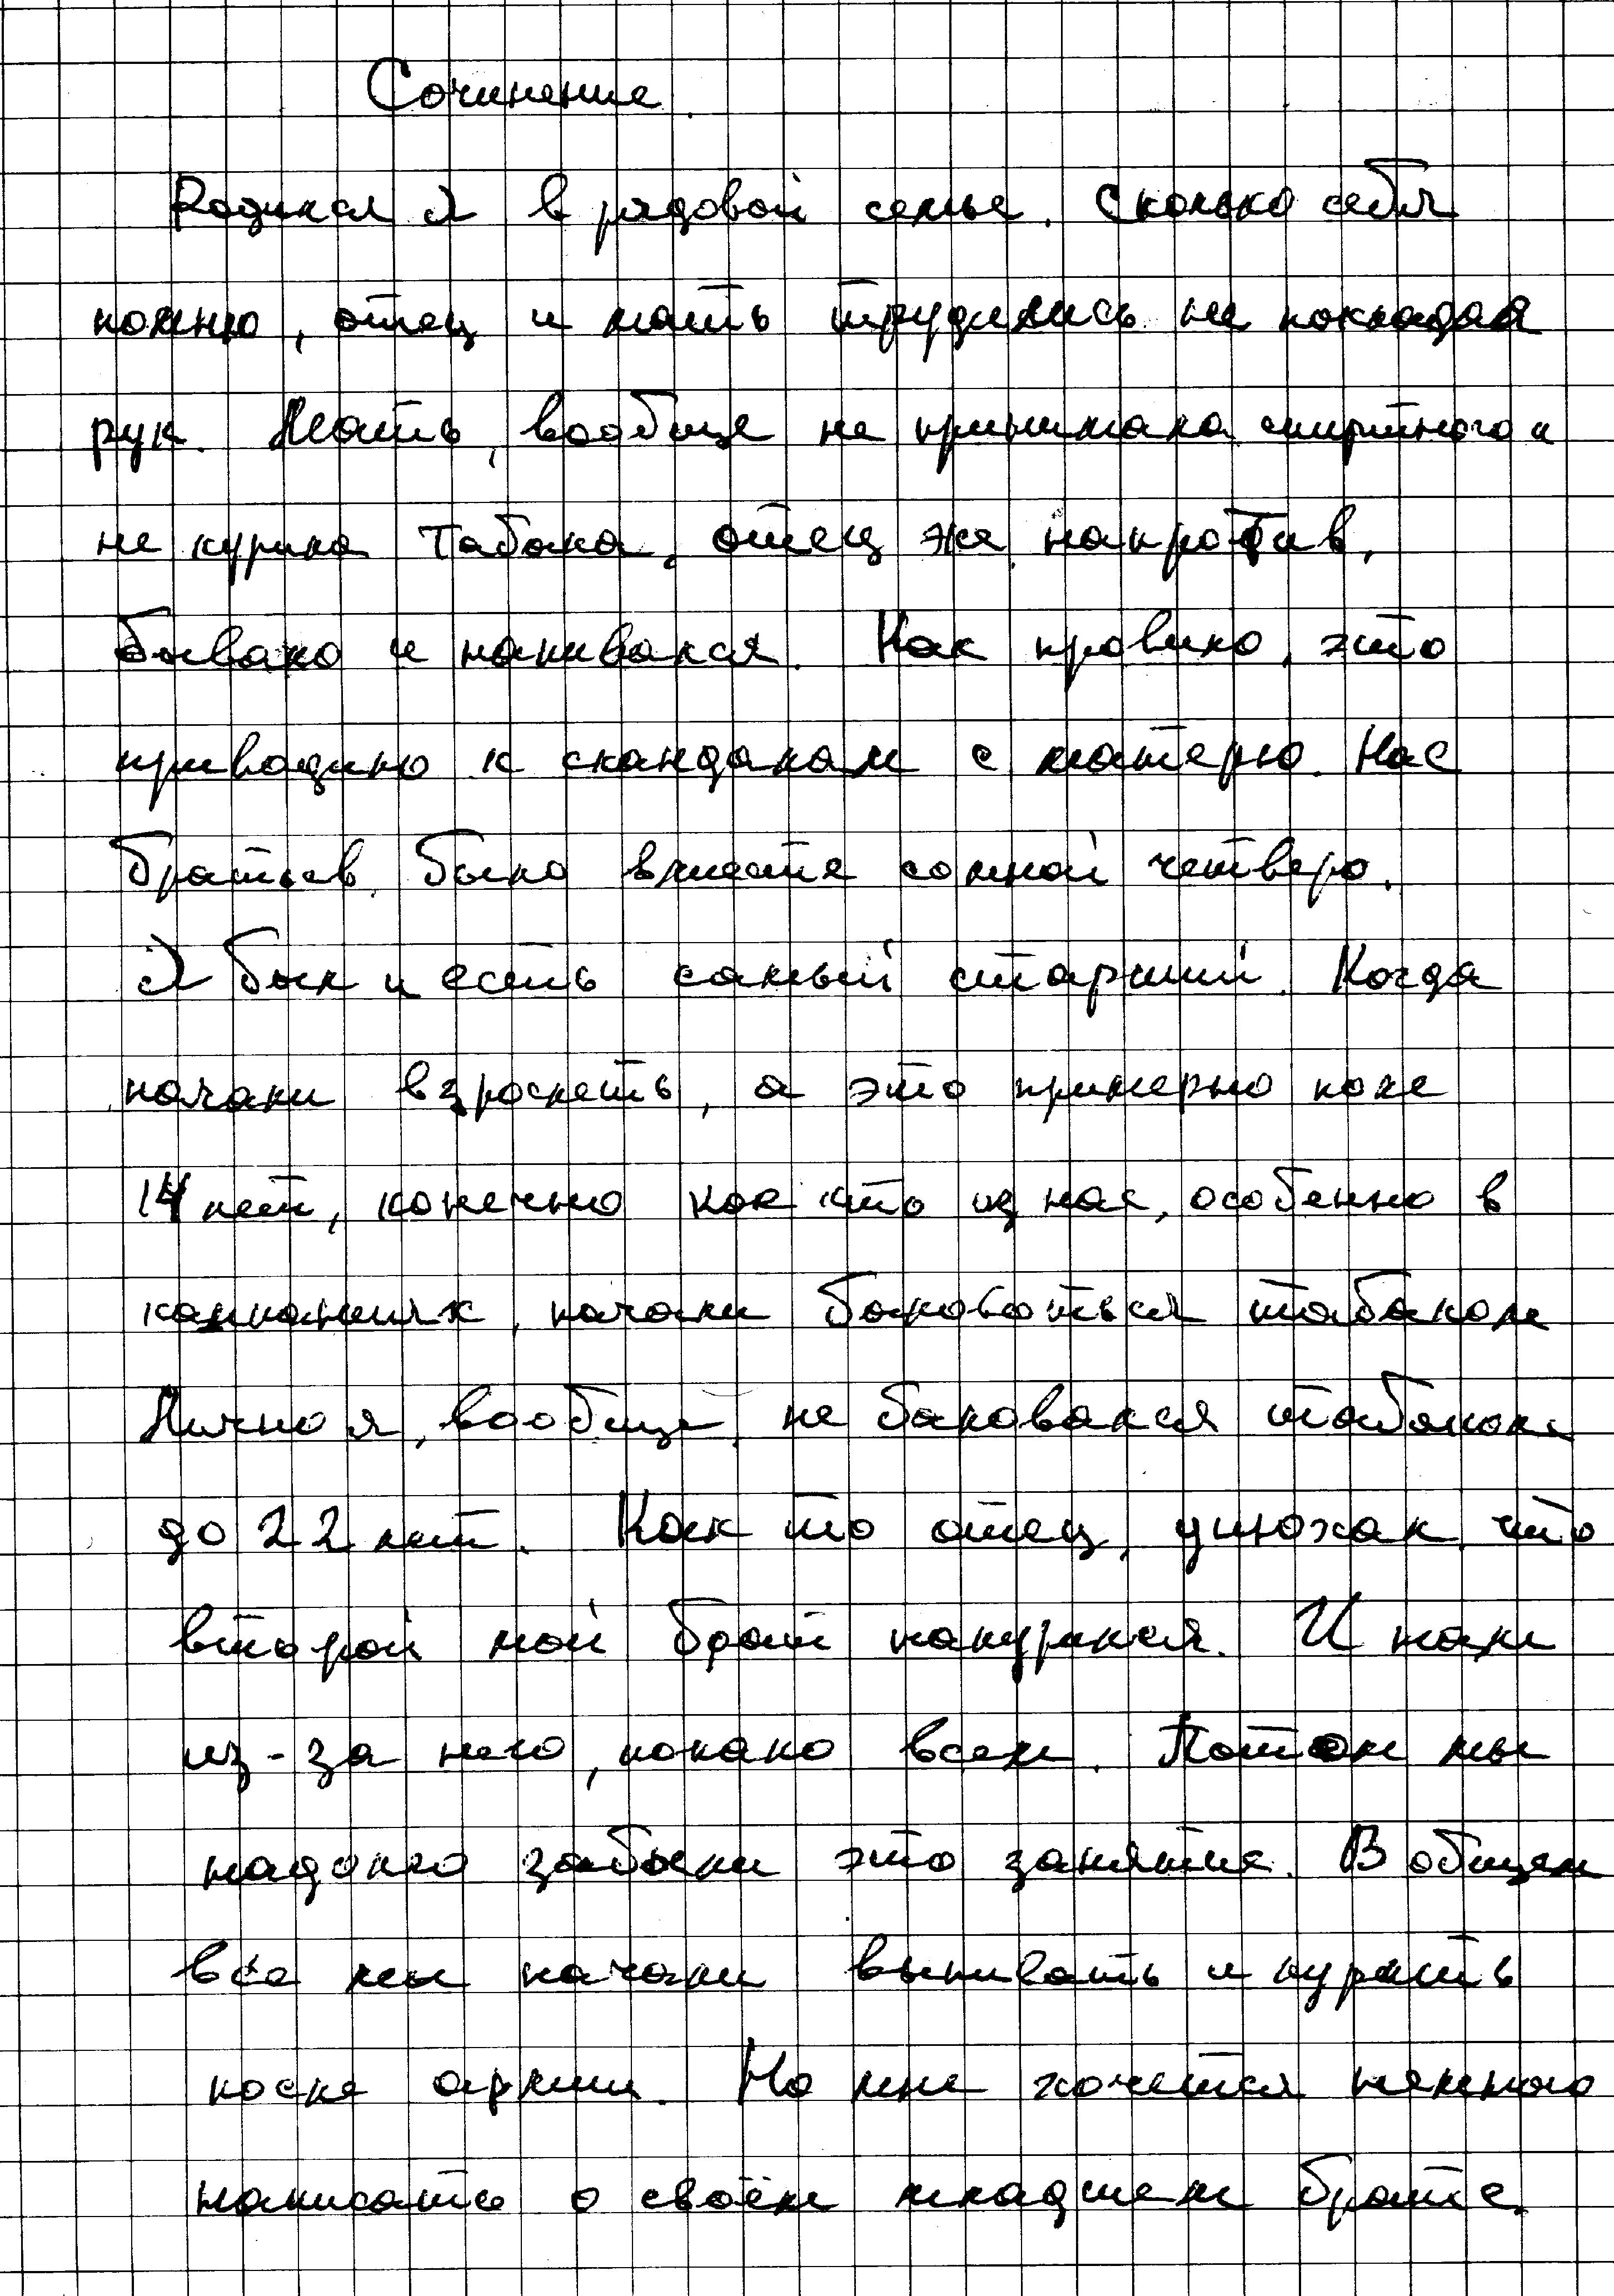 Сочинение.
Родился я в рядовой семье. Сколько себя
помню, отец и мать трудились не покладая
рук. Мать, вообще не принимала спиртного и
не курила табака, отец же, напротив,
бывало и напивался. Как правило, это
приводило к скандалам с матерью. Нас
братьев, было вместе сомной четверо.
Я был и есть самый старший. Когда
начали взрослеть, а это примерно после
14 лет, конечно кое кто из нас, особенно в
компаниях, начали баловаться табаком
Лично я, вообще, не баловался табаком
до 22 лет. Как то отец, унюхал, что
второй мой брат накурился. И нам
из-за него, попало всем. Потом мы
надолго забыли это занятие. В общем
все мы начали выпивать и курить
после армии. Но мне хочется немного
написать о своём младшем брате.